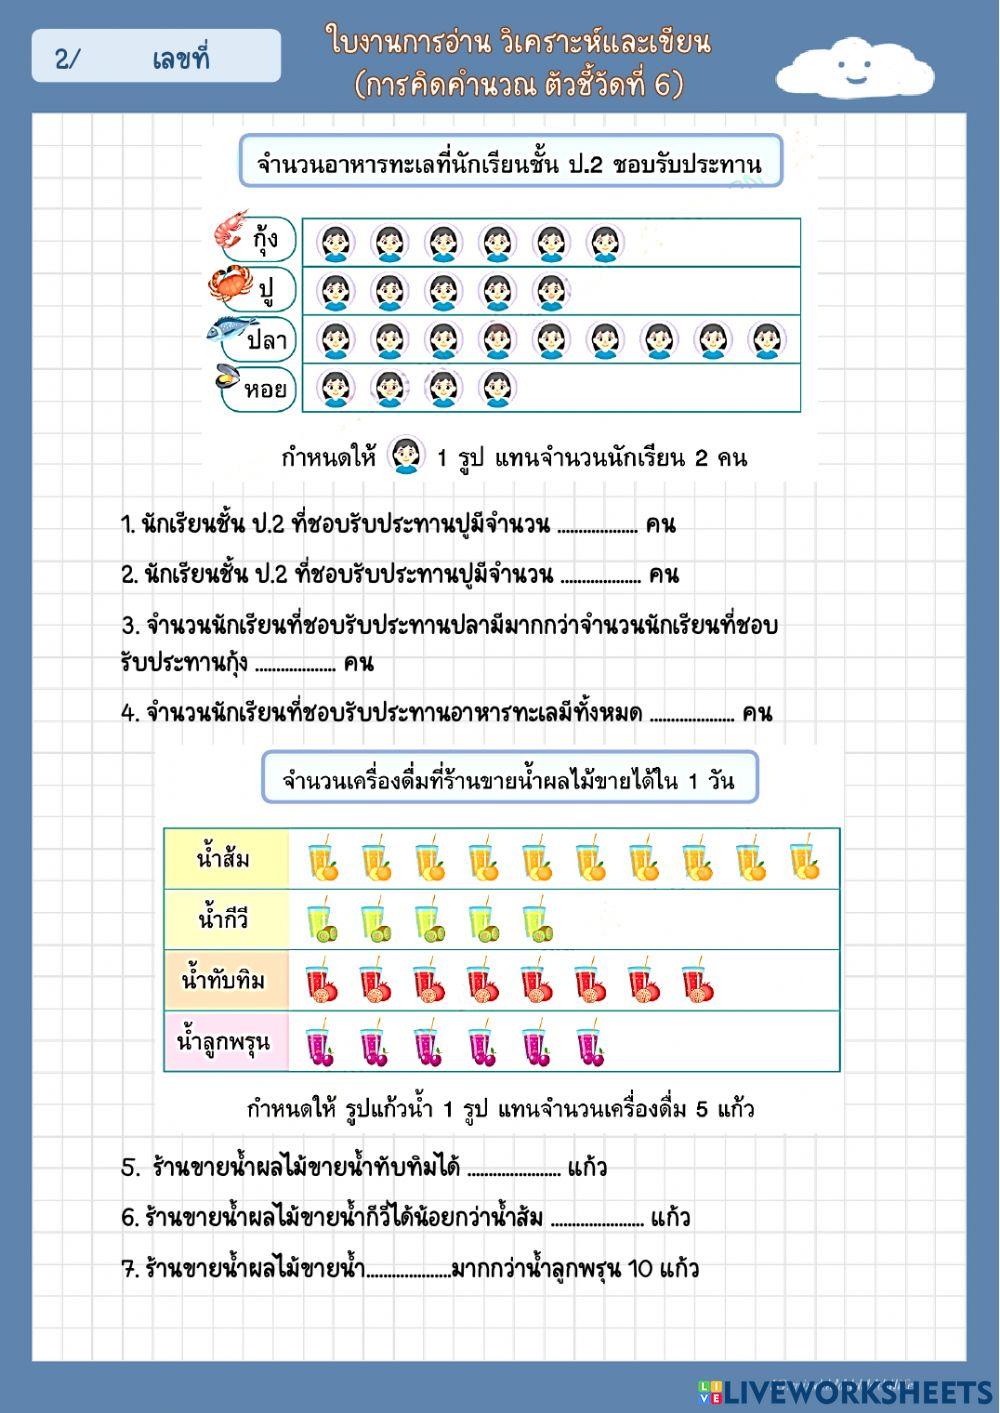 2/ เลขที่
ใบงานการอ่าน วิเคราะห์และเขียน
(การคิดคำนวณ ตัวชี้วัดที่ 6)
จำนวนอาหารทะเลที่นักเรียนชั้น ป.2 ชอบรับประทาน
กุ้ง
ปู
ปลา
หอย
กำหนดให้ 1 รูป แทนจำนวนนักเรียน 2 คน
1. นักเรียนชั้น ป.2 ที่ชอบรับประทานปูมีจำนวน ................... คน
2. นักเรียนชั้น ป.2 ที่ชอบรับประทานปูมีจำนวน ................... คน
3. จำนวนนักเรียนที่ชอบรับประทานปลามีมากกว่าจำนวนนักเรียนที่ชอบ
รับประทานกุ้ง ................... คน
4. จำนวนนักเรียนที่ชอบรับประทานอาหารทะเลมีทั้งหมด .................... คน
จำนวนเครื่องดื่มที่ร้านขายน้ำผลไม้ขายได้ใน 1 วัน
น้ำส้ม
น้ำกีวี
น้ำทับทิม
น้ำลูกพรุน
กำหนดให้ รูปแก้วน้ำ 1 รูป แทนจำนวนเครื่องดื่ม 5 แก้ว
5. ร้านขายน้ำผลไม้ขายน้ำทับทิมได้ ...................... แก้ว
6. ร้านขายน้ำผลไม้ขายน้ำกีวีได้น้อยกว่าน้ำส้ม ...................... แก้ว
7. ร้านขายน้ำผลไม้ขายน้ำ....................มากกว่าน้ำลูกพรุน 10 แก้ว
LIVEWORKSHEETS